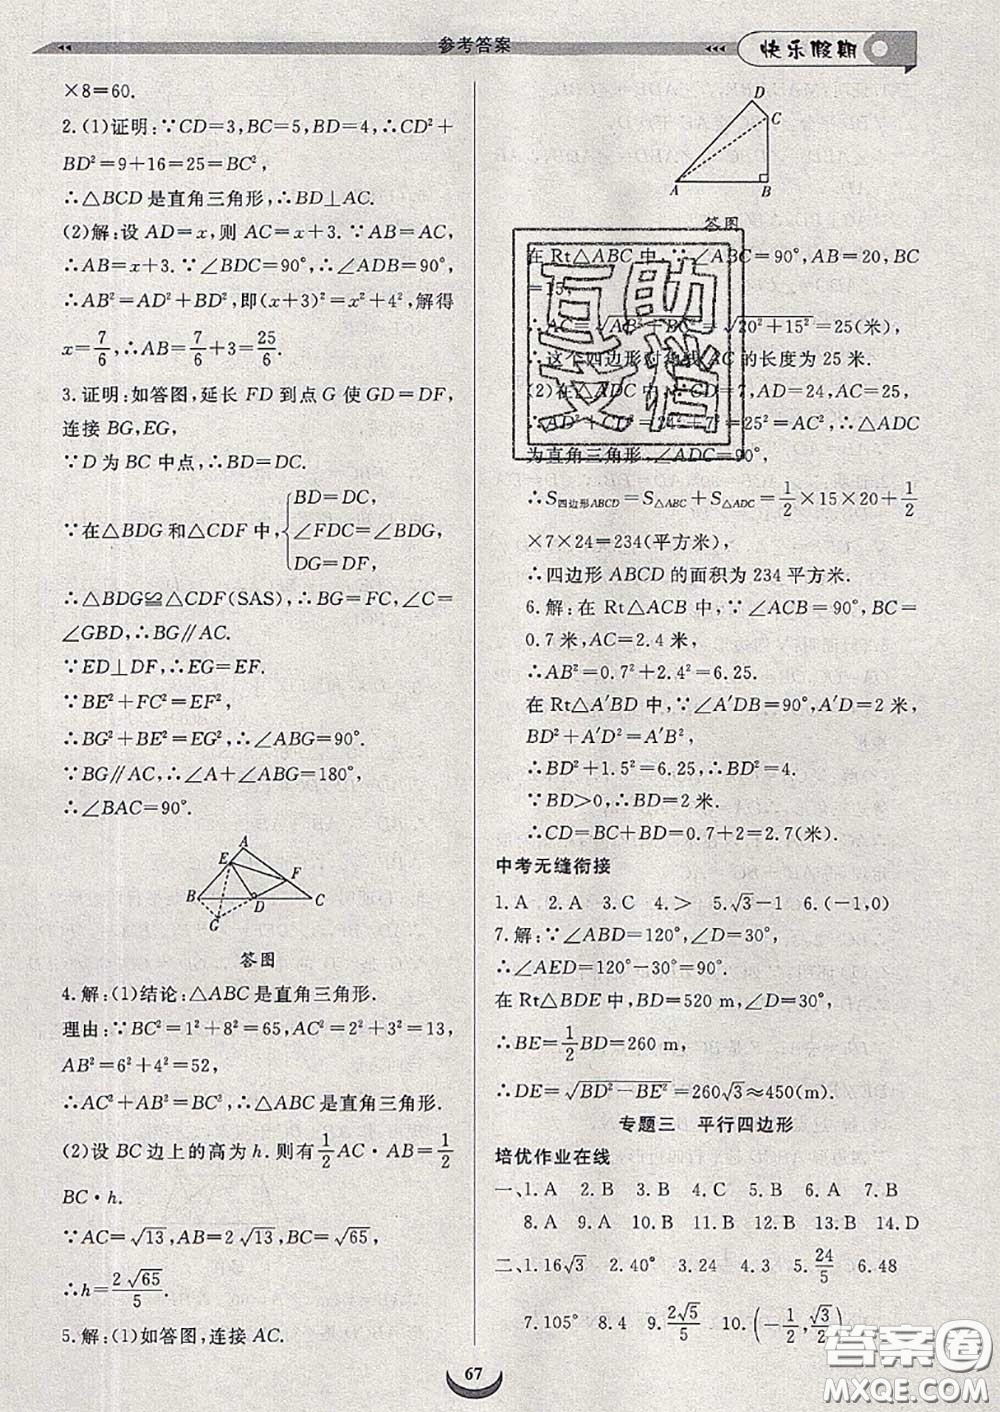 参考答案
快乐假期
×8=60.
2.(1)证明:∵CD=3,BC=5,BD=4,∴CD²+
BD²=9+16=25=BC²,
∴△BCD是直角三角形,∴BD⊥AC.
(2)解:设AD=x,则AC=x+3.∵AB=AC,
∴AB=x+3.∵∠BDC=90°,∴∠ADB=90°,
∴AB²=AD²+BD²,即(x+3)²=x²+4²,解得
x=7/6,∴AB=7/6+3=25/6.
3.证明:如答图,延长FD到点G使GD=DF,
连接BG,EG,
∵D为BC中点,∴BD=DC.
∵在△BDG和△CDF中,{BD=DC,
∠FDC=∠BDG,
DG=DF,
∴△BDG≌△CDF(SAS),∴BG=FC,∠C=
∠GBD,∴BG∥AC.
∵ED⊥DF,∴EG=EF.
∵BE²+FC²=EF²,
∴BG²+BE²=EG²,∴∠ABG=90°.
∵BG∥AC,∴∠A+∠ABG=180°,
∴∠BAC=90°.
A
E
F
B
D
C
G
答图
4.解:(1)结论:△ABC是直角三角形.
理由:∵BC²=1²+8²=65,AC²=2²+3²=13,
AB²=6²+4²=52,
∴AC²+AB²=BC²,∴△ABC是直角三角形.
(2)设BC边上的高为h.则有1/2AC·AB=1/2
BC·h.
∵AC=√13,AB=2√13,BC=√65,
∴h=2√65/5.
5.解:(1)如答图,连接AC.
D
C
A
B
答图
在Rt△ABC中,∵∠ABC=90°,AB=20,BC
=15,
∴AC=√AB²+BC²=√20²+15²=25(米),
∴这个四边形对角线AC的长度为25米.
(2)在△ADC中,∵CD=7,AD=24,AC=25,
∴AD²+CD²=24²+7²=25²=AC²,∴△ADC
为直角三角形,∠ADC=90°,
∴S四边形ABCD=S△ABC+S△ADC=1/2×15×20+1/2
×7×24=234(平方米),
∴四边形ABCD的面积为234平方米.
6.解:在Rt△ACB中,∵∠ACB=90°,BC=
0.7米,AC=2.4米,
∴AB²=0.7²+2.4²=6.25.
在Rt△A′BD中,∵∠A′DB=90°,A′D=2米,
BD²+A′D²=A′B²,
∴BD²+1.5²=6.25,∴BD²=4.
∵BD>0,∴BD=2米.
∴CD=BC+BD=0.7+2=2.7(米).
中考无缝衔接
1.A 2.A 3.C 4.> 5.√3-1 6.(-1,0)
7.解:∵∠ABD=120°,∠D=30°,
∴∠AED=120°-30°=90°.
在Rt△BDE中,BD=520 m,∠D=30°,
∴BE=1/2BD=260 m,
∴DE=√BD²-BE²=260√3≈450(m).
专题三 平行四边形
培优作业在线
一、1.A 2.B 3.B 4.C 5.A 6.A 7.B
8.A 9.A 10.B 11.A 12.B 13.B 14.D
二、1.16√3 2.40° 3.24 4.3 5.24/5 6.48
7.105° 8.4 9.2√5/5 10.(-1/2,√3/2)
67
互助
文档
答案圈
MXQE.COM